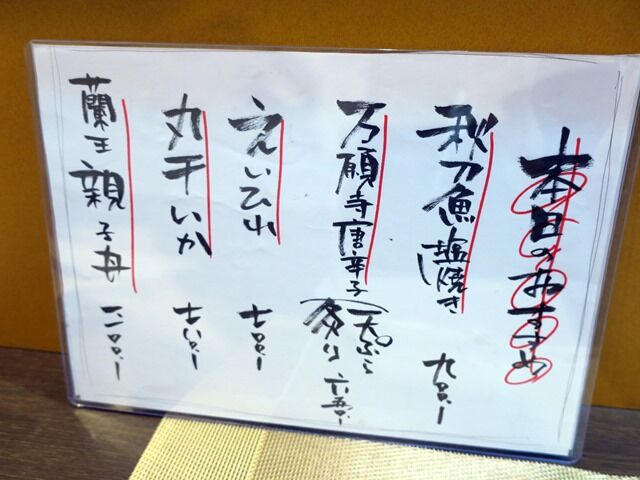 本日のおすすめ
秋刀魚塩焼き 九〇〇.-
万願寺唐辛子 天ぷら 炙り 六五〇.-
えいひれ 七〇〇.-
丸干いか 七八〇.-
蘭王親子丼 一二〇〇.-